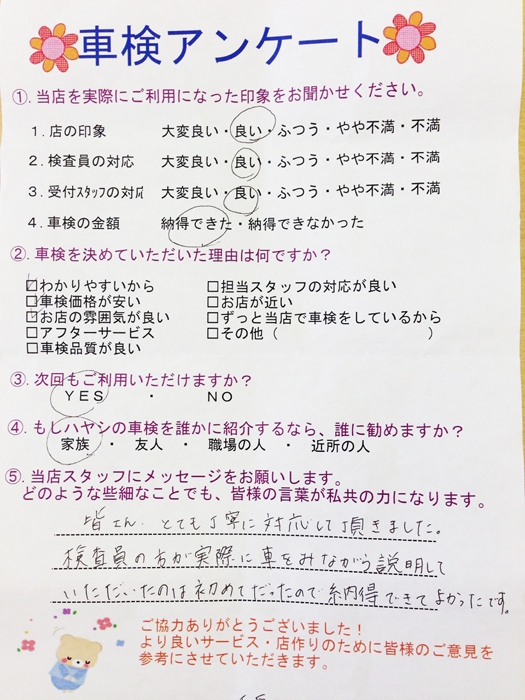 車検アンケート
①. 当店を実際にご利用になった印象をお聞かせください。
1. 店の印象 大変良い・良い・ふつう・やや不満・不満
2. 検査員の対応 大変良い・良い・ふつう・やや不満・不満
3. 受付ｽﾀｯﾌの対応 大変良い・良い・ふつう・やや不満・不満
4. 車検の金額 納得できた・納得できなかった
②. 車検を決めていただいた理由は何ですか？
□わかりやすいから □担当スタッフの対応が良い
□車検価格が安い □お店が近い
□お店の雰囲気が良い □ずっと当店で車検をしているから
□アフターサービス □その他（ ）
□車検品質が良い
③. 次回もご利用いただけますか？
YES ・ NO
④. もしハヤシの車検を誰かに紹介するなら、誰に勧めますか？
家族 ・ 友人 ・ 職場の人 ・ 近所の人
⑤. 当店スタッフにメッセージをお願いします。
どのような些細なことでも、皆様の言葉が私共の力になります。
皆さん、とても丁寧に対応して頂きました。
検査員の方が実際に車をみながら説明して
いただいたのは初めてだったので納得できてよかったです。
ご協力ありがとうございました！
より良いサービス・店作りのために皆様のご意見を
参考にさせていただきます。